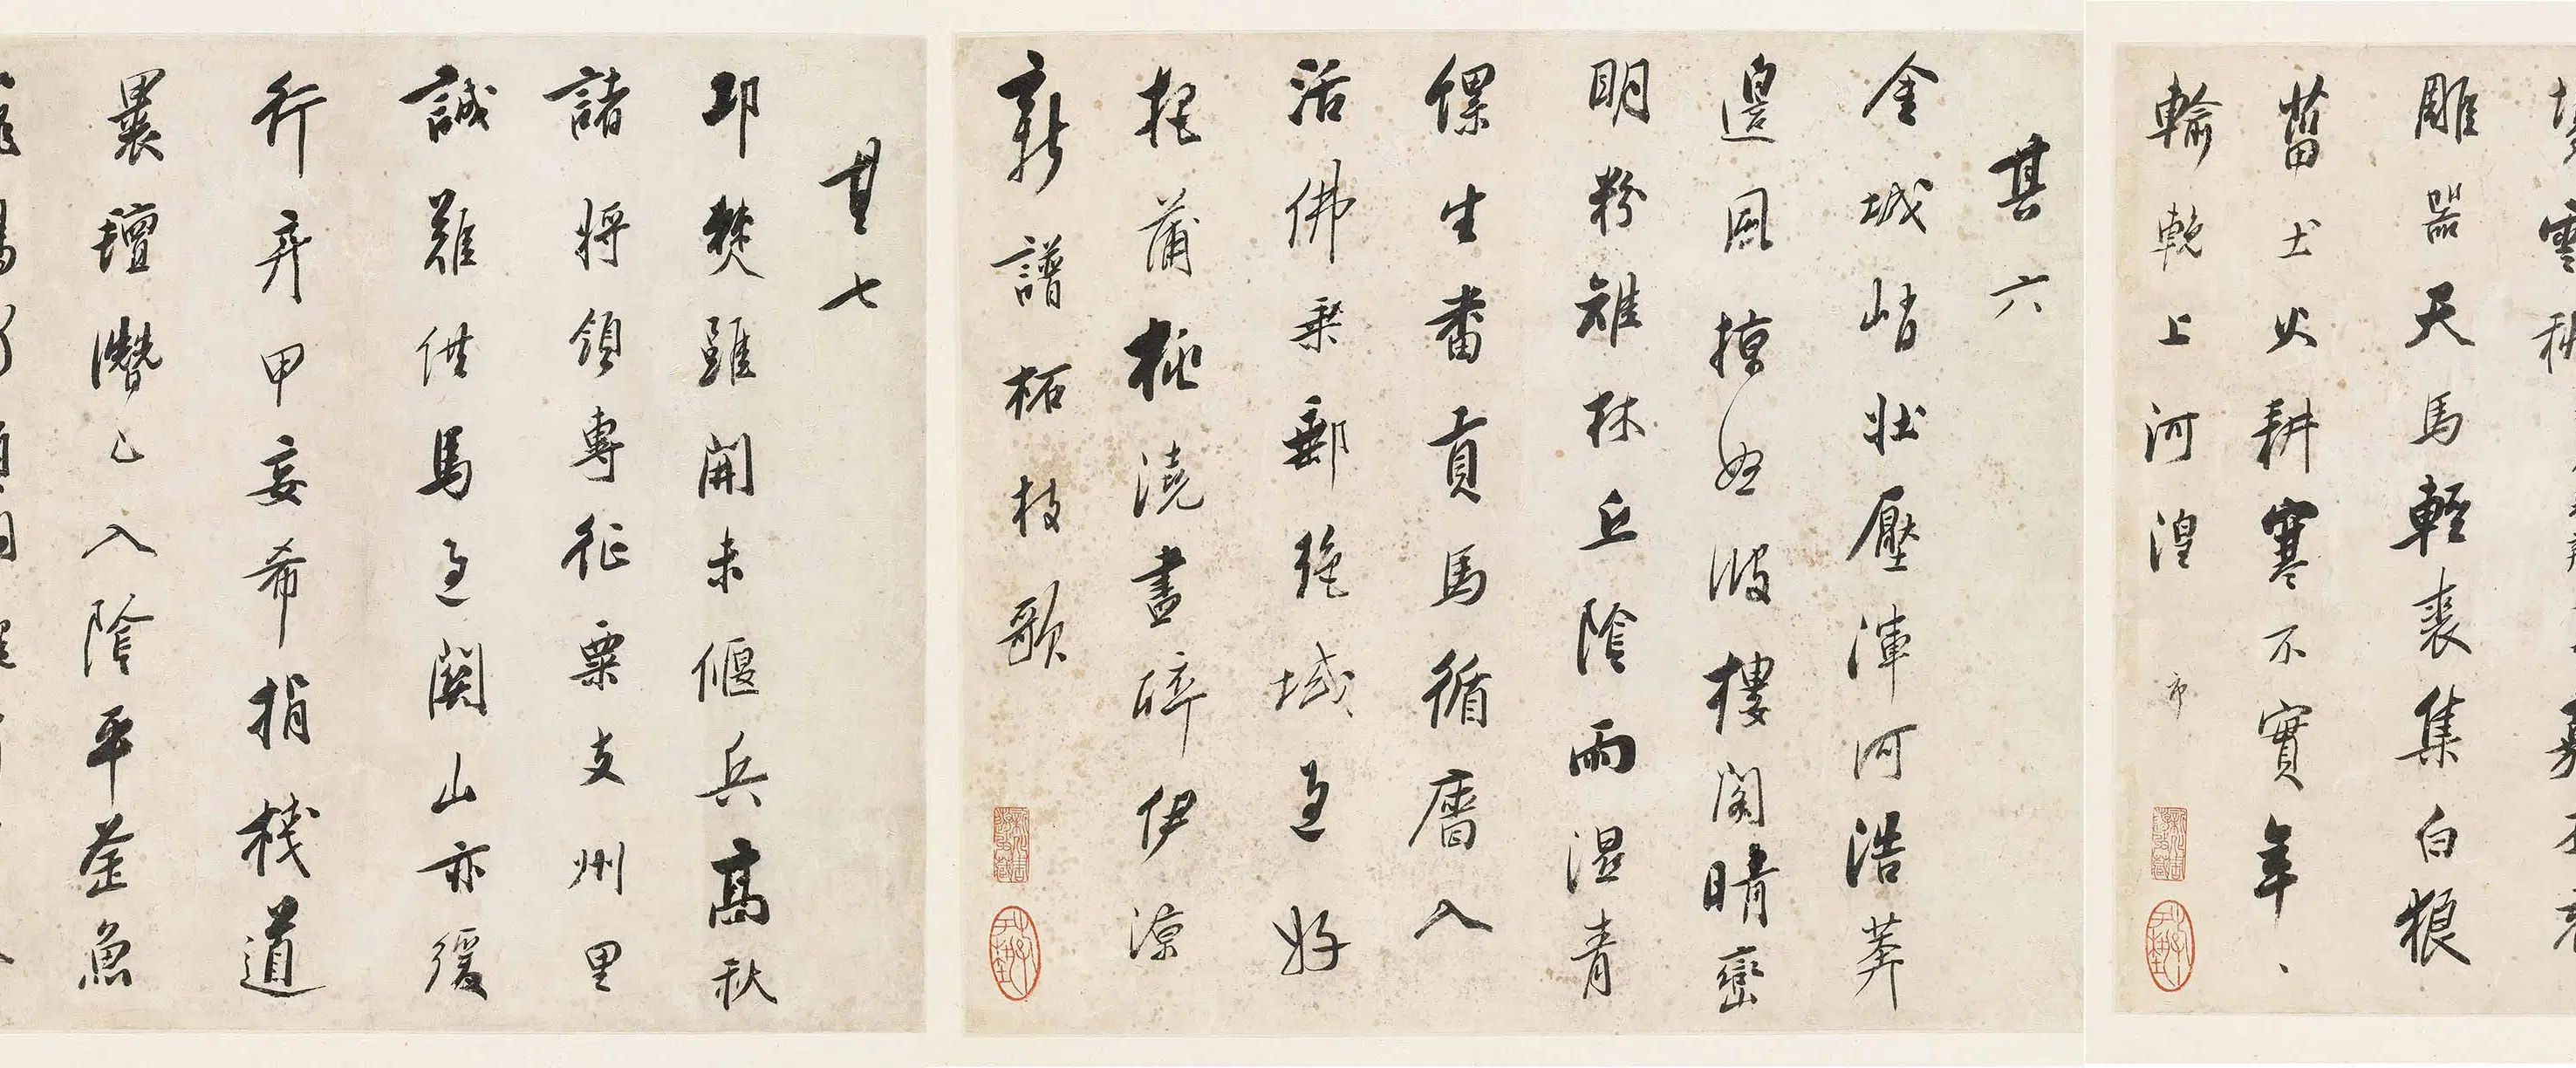 雕器天馬輕裘集白狼
菑士火耕寒不實年丶
輪輓上河湟
其六
金城峭壯壓渾河浩莽
邊風掠怒波樓閣晴巒
明粉雉林丘陰雨湿青
騾生番貢馬循膺入
活佛乘郵絶域過好
把蒲桃澆盡碎伊涼
新譜柘枝歌
其七
邛僰雖開未偃兵高秋
諸將領專征粟支州里
誠難供馬過關山亦緩
行弃甲妄希捐棧道
裹氊潛已入陰平釜魚